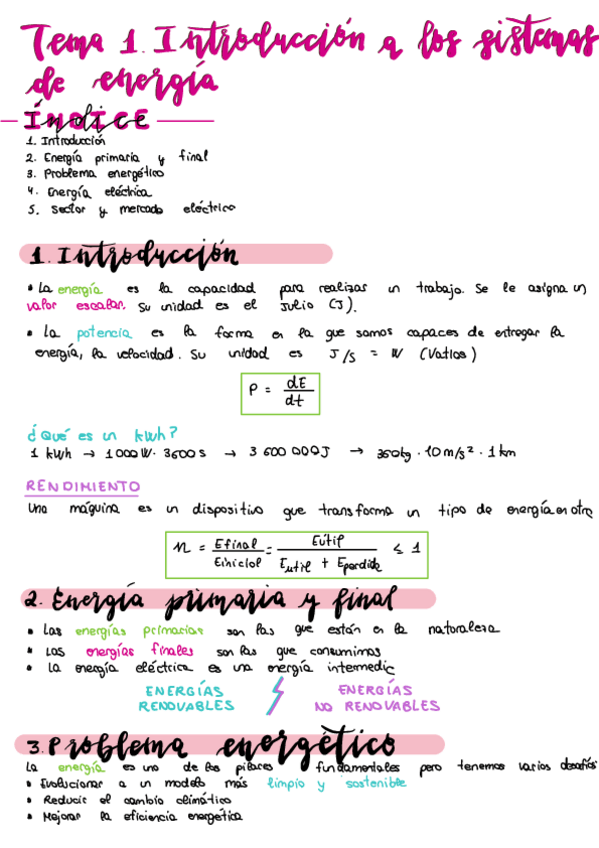 Tema 1. Introducción a los sistemas
de energía
ÍNDICE
1. Introducción
2. Energía primaria y final
3. Problema energético
4. Energía eléctrica
5. Sector y mercado eléctrico
1. Introducción
• La energía es la capacidad para realizar un trabajo. Se le asigna un
valor escalar. Su unidad es el Julio (J).
• La potencia es la forma en la que somos capaces de entregar la
energía, la velocidad. Su unidad es J/s = W (Vatios)
P = dE/dt
¿Qué es un kWh?
1 kWh → 1000W · 3600s → 3 600 000J → 360kg · 10m/s² · 1km
RENDIMIENTO
Una máquina es un dispositivo que transforma un tipo de energía en otra
η = Efinal/Einicial = Eútil/(Eutil + Eperdida) ≤ 1
2. Energía primaria y final
• Las energías primarias son las que están en la naturaleza
• Las energías finales son las que consumimos
• La energía eléctrica es una energía intermedia
ENERGÍAS ENERGÍAS
RENOVABLES NO RENOVABLES
3. Problema energético
La energía es uno de los pilares fundamentales pero tenemos varios desafíos
• Evolucionar a un modelo más limpio y sostenible
• Reducir el cambio climático
• Mejorar la eficiencia energética